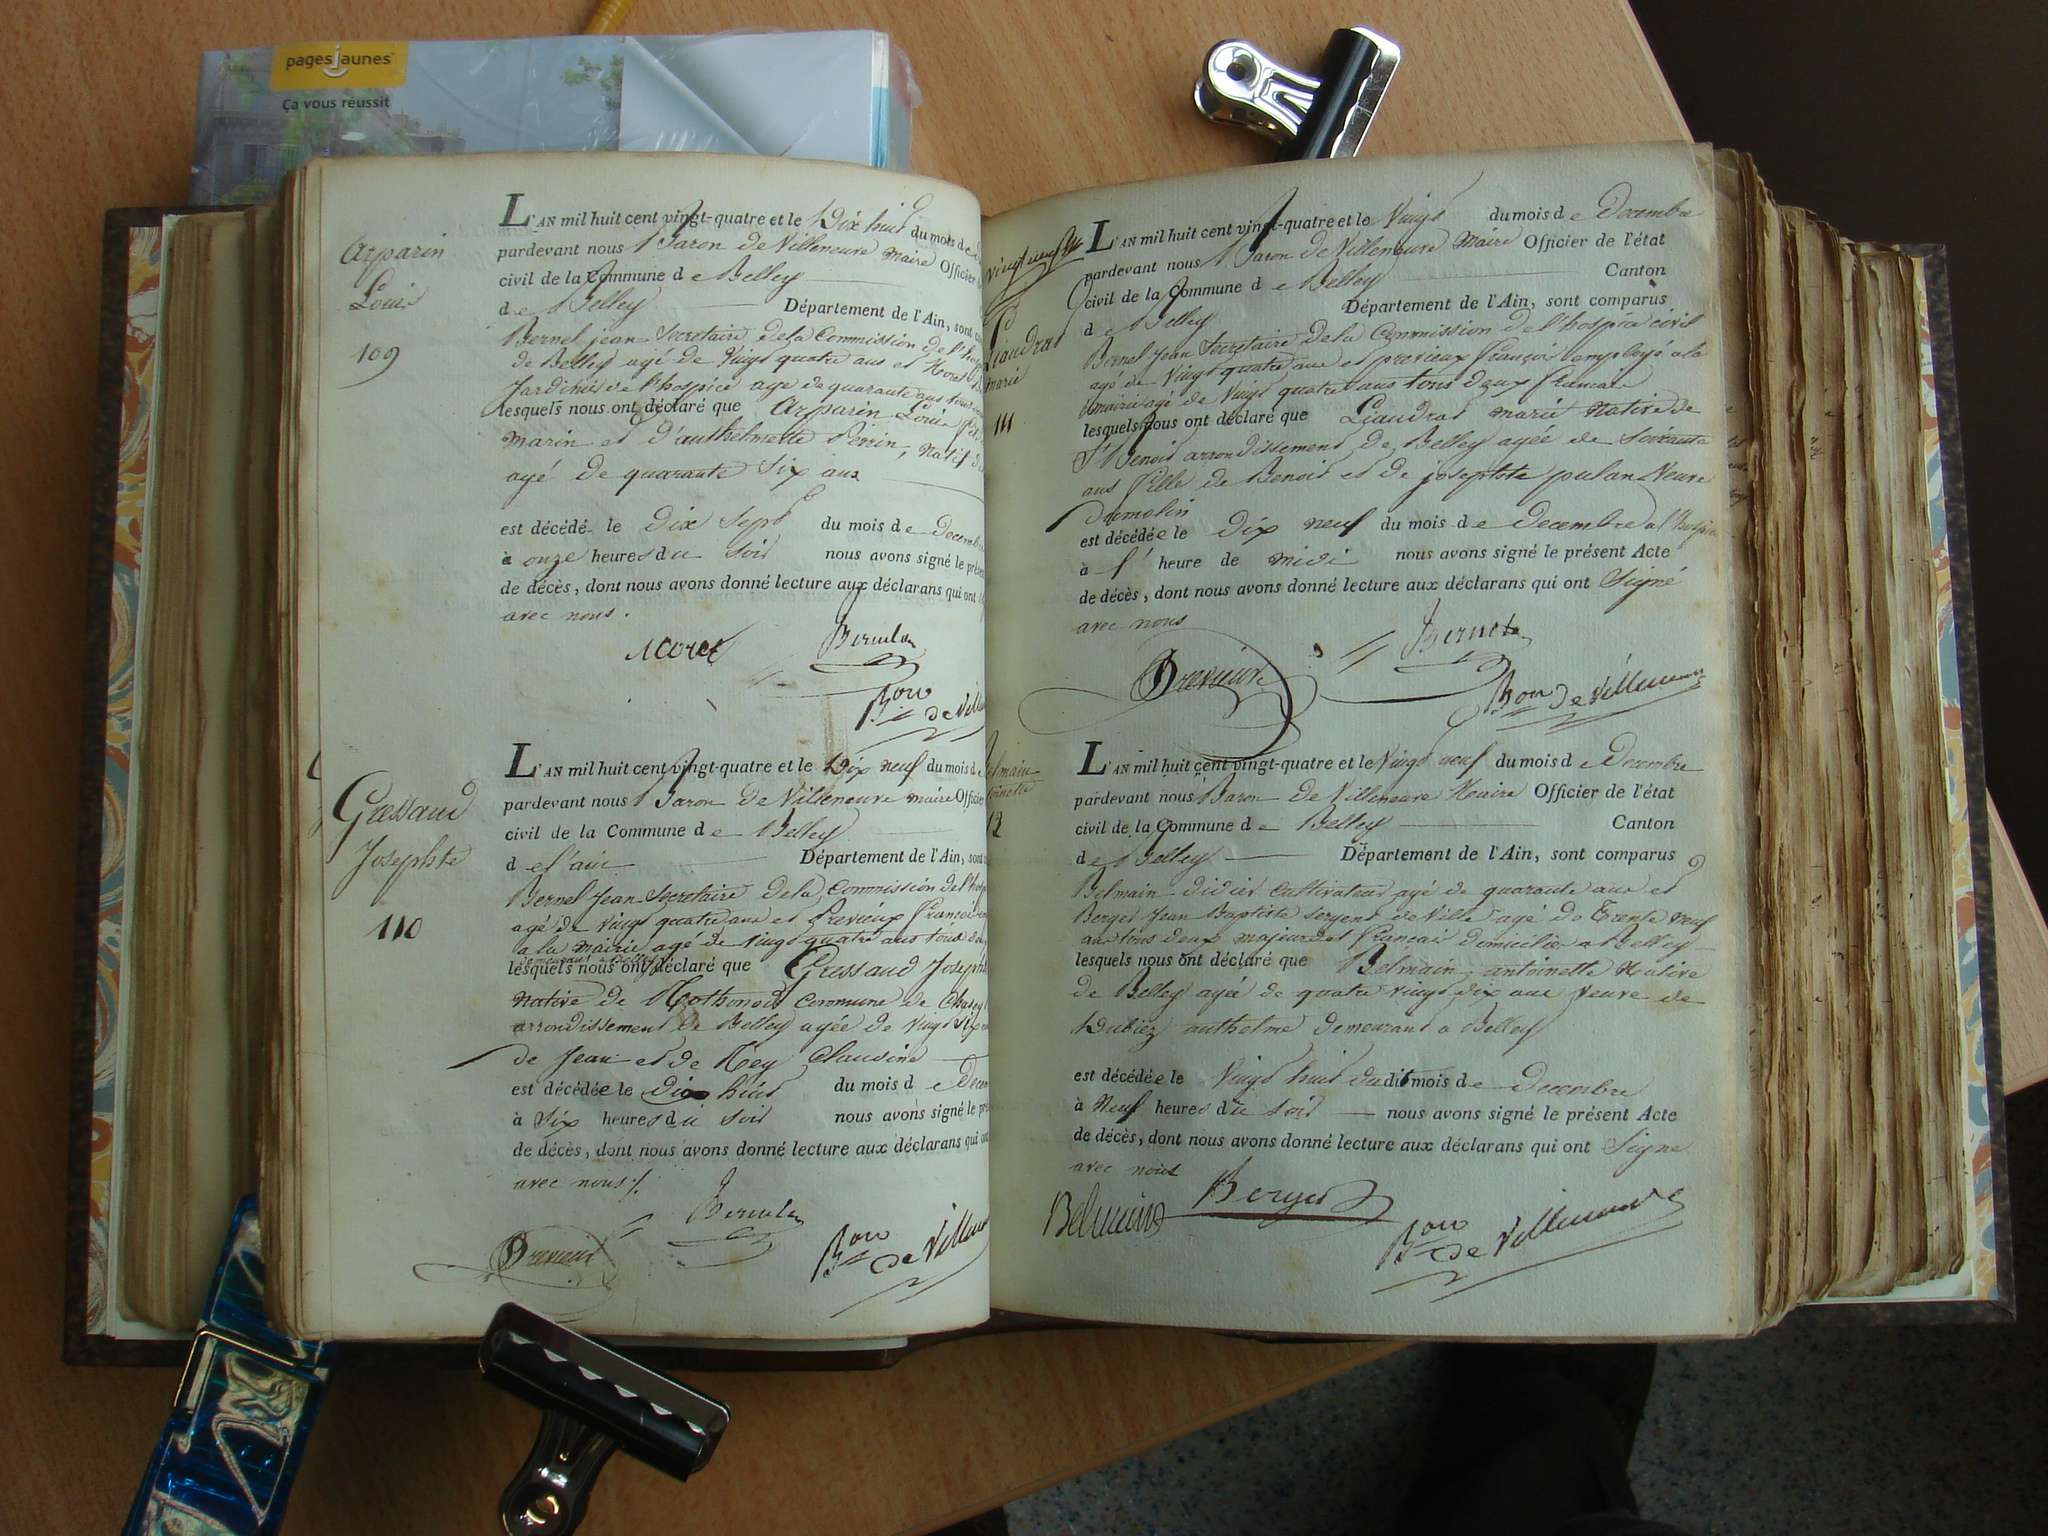 pagesjaunes
Ça vous réussit
Arparin
Louis
109
L'AN mil huit cent vingt-quatre et le Dix huit du mois de
pardevant nous Baron de Villeneuve maire Officier
civil de la Commune de Belley
de Belley Département de l'Ain, sont
Bernel jean Secretaire de la Commission de
de Belley agé de vingt quatre ans et Moret
Jardinier de l'hospice age de quarante ans tous
lesquels nous ont déclaré que Arparin Louis
Marin et d'anthelmette Perrin, Natif
agé de quarante six ans
est décédé le dix sept du mois de Decembre
à onze heures du soir nous avons signé le
de décès, dont nous avons donné lecture aux déclarans qui ont
avec nous.
Moret Bernel
Bon
de
Gressaud
Josephte
110
L'AN mil huit cent vingt-quatre et le Dix neuf du mois d
pardevant nous Baron de Villeneuve maire Officier
civil de la Commune de Belley
de l'ain Département de l'Ain, sont
Bernel Jean Secretaire de la Commission de
agé de vingt quatre ans et Previeux François
a la mairie agé de vingt quatre ans tous
demeurant a Belley
lesquels nous ont déclaré que Gressaud
Native de Rothonod Commune de
arrondissement de Belley agée de vingt
de Jean et de Rey Claudine
est décédée le dix huit du mois de
à Six heures du soir nous avons signé le
de décès, dont nous avons donné lecture aux déclarans qui ont
avec nous
Bernel
Previeux Bon
de
vingt neuf
Liaudras
Marie
111
L'AN mil huit cent vingt-quatre et le Vingt du mois de Decembre
pardevant nous Baron de Villeneuve Maire Officier de l'état
civil de la Commune de Belley Canton
de Belley Département de l'Ain, sont comparus
Bernel Jean Secretaire de la Commission de l'hospice civil
agé de Vingt quatre ans et previeux François employé a la
mairie agé de Vingt quatre ans tous deux francais
lesquels nous ont déclaré que Liaudras marie Native de
St Benoit arrondissement de Belley agée de soixante
ans fille de Benoit et de josephte pulan Veuve
Dumolin
est décédée le dix neuf du mois de decembre a l'hospice
à l' heure de midi nous avons signé le présent Acte
de décès, dont nous avons donné lecture aux déclarans qui ont Signé
avec nous
Previeux Bernel
Bon de Villeneuve
L'AN mil huit cent vingt-quatre et le Vingt neuf du mois de Decembre
pardevant nous Baron de Villeneuve Maire Officier de l'état
civil de la Commune de Belley Canton
de Belley Département de l'Ain, sont comparus
Belmain didier cultivateur agé de quarante ans et
Berger Jean Baptiste sergent de Ville agé de Trente neuf
ans tous deux majeurs et français domiciliés a Belley
lesquels nous ont déclaré que Belmain antoinette Native
de Belley agée de quatre vingt dix ans Veuve de
Dubiez anthelme demeurant a Belley
est décédée le Vingt huit dudit mois de decembre
à Neuf heures du soir nous avons signé le présent Acte
de décès, dont nous avons donné lecture aux déclarans qui ont Signe
avec nous
Belmain Berger
Bon de Villeneuve